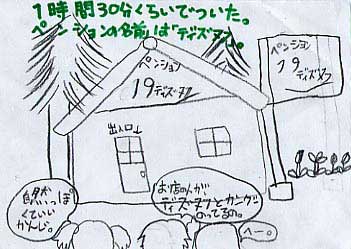 1時間30分くらいでついた。
ペンションの名前は「ディズヌフ」。
ペンション
19
ディズヌフ
ペンション
19
ディズヌフ
出入口↓
自然っぽ
くていい
かんじ。
お店の人が
ディズヌフとカング
のってるの。
へー。